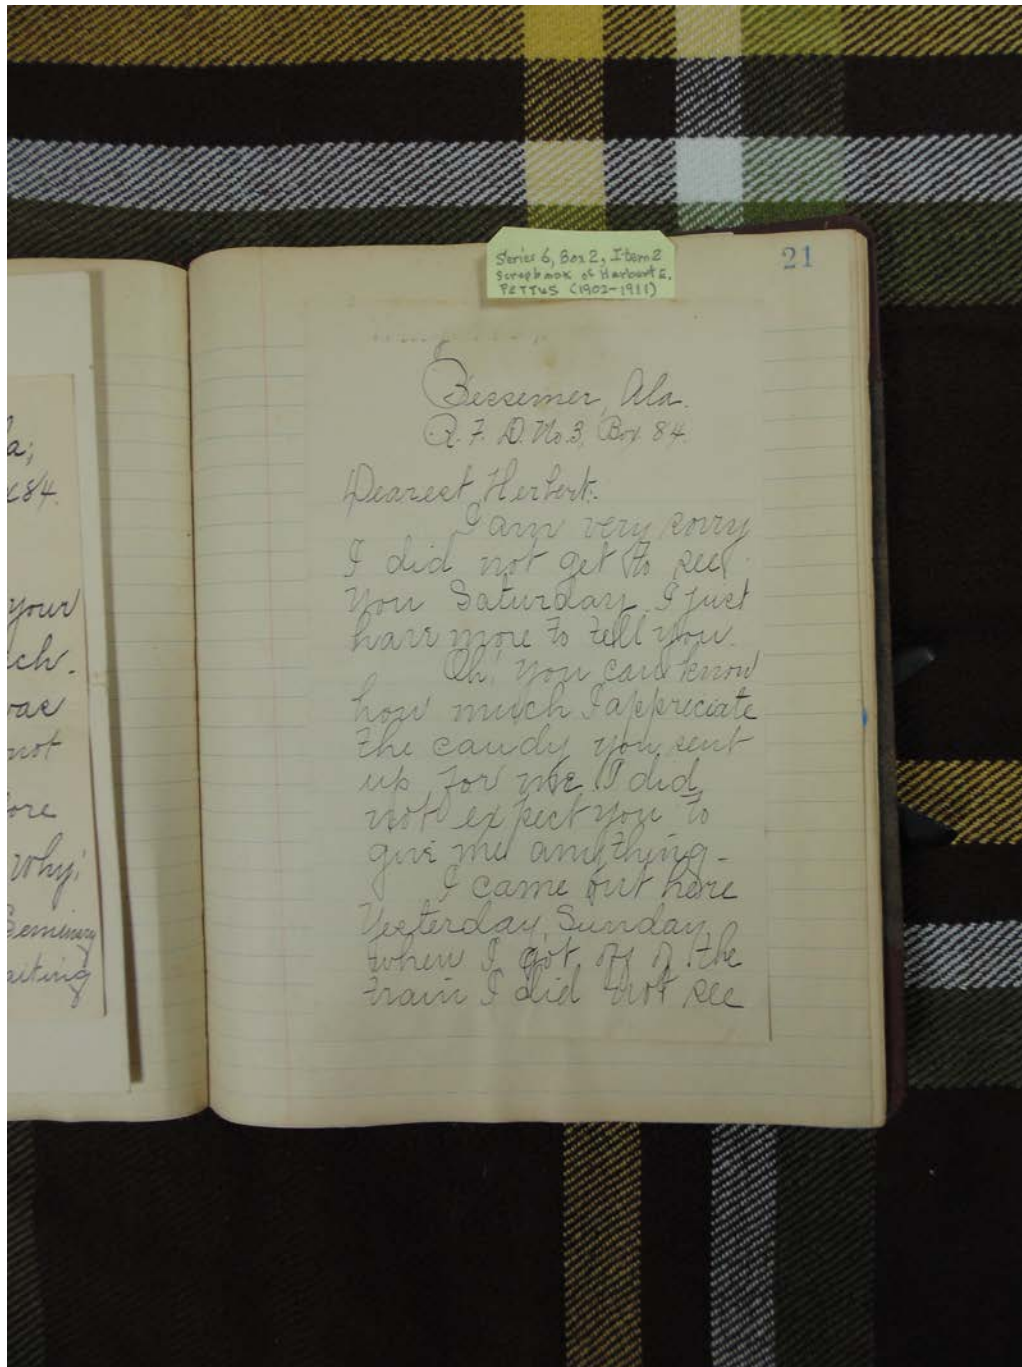 a;
x84.
your
ch.
was
not
ore
Why;
Seminary
siting
Series 6, Box 2, Item 2
Scrapbook of Herbert E.
PETTUS (1902-1911)
21
Bessemer, Ala.
R. F. D. No. 3, Box 84.
Dearest Herbert:
I am very sorry
I did not get to see
you Saturday. I just
have more to tell you.
Oh! you can know
how much I appreciate
the candy you sent
up for me. I did
not expect you to
give me anything-
I came out here
Yesterday, Sunday,
when I got off of the
train I did not see